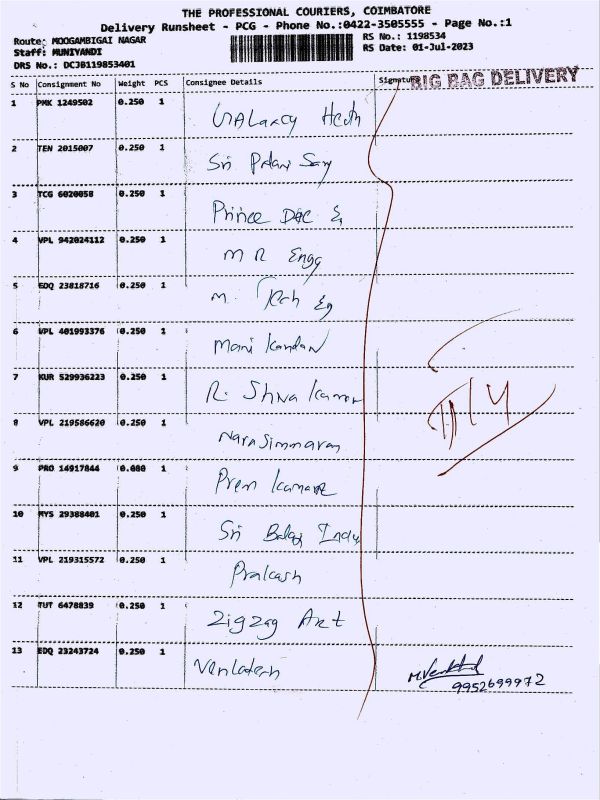 THE PROFESSIONAL COURIERS, COIMBATORE
Delivery Runsheet - PCG - Phone No.:0422-3505555 - Page No.:1
Route: MOOGAMBIGAI NAGAR
RS No.: 1198534
Staff: MUNIYANDI
RS Date: 01-Jul-2023
DRS No.: DCJB119853401
S No Consignment No Weight PCS Consignee Details Signature
BIG BAG DELIVERY
1 PMK 1249502 0.250 1 GALaxcy
2 TEN 2015007 0.250 1 Sri
3 TCG 6020058 0.250 1 Prince
4 VPL 942024112 0.250 1 M R Engg
5 EDQ 23818716 0.250 1 M. Tech Eg
6 VPL 401993376 0.250 1 Mani Kandan
7 KUR 529936223 0.250 1 R. Shiva Kumar
8 VPL 219586620 0.250 1 Narasimmaran
9 PRO 14917844 0.080 1 Prem Kumar
10 MYS 29388401 0.250 1 Sri Balaji Indu
11 VPL 219315572 0.250 1 Prakash
12 TUT 6478839 0.250 1 Zigzag Art
13 EDQ 23243724 0.250 1 Venkatesh
9952699972